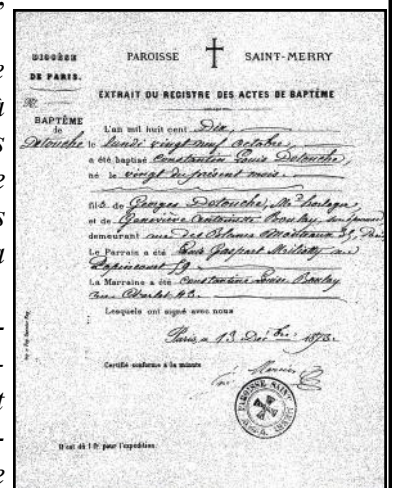 DIOCÈSE
DE PARIS.
PAROISSE SAINT-MERRY
EXTRAIT DU REGISTRE DES ACTES DE BAPTÊME
BAPTÊME
de
Detouche
L'an mil huit cent Dix,
le lundi vingt neuf octobre,
a été baptisé Constantin Louis Detouche,
né le vingt du présent mois.
fils de Georges Detouche, Md horloger
et de Geneviève Antoinette Boulay, son épouse
demeurant rue des Blancs Manteaux 35, Paris
Le Parrain a été Louis Gaspart rue
Popincourt 59
La Marraine a été Constantine Louise Boulay
rue Charlot 43.
Lesquels ont signé avec nous
Paris, a 13 Déc bre 1873.
Certifié conforme à la minute
Mercier
PAROISSE SAINT-MERRY
Il est dû 1 fr. pour l'expédition.